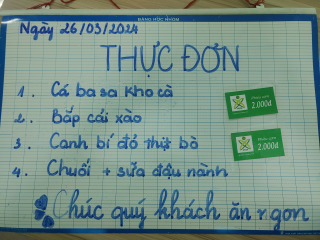 BẢNG HỌC NHÓM
Ngày 26/03/2024
THỰC ĐƠN
1. Cá basa kho cà
2. Bắp cải xào
3. Canh bí đỏ thịt bò
4. Chuối + sữa đậu nành
2.000đ
2.000đ
Chúc quý khách ăn ngon